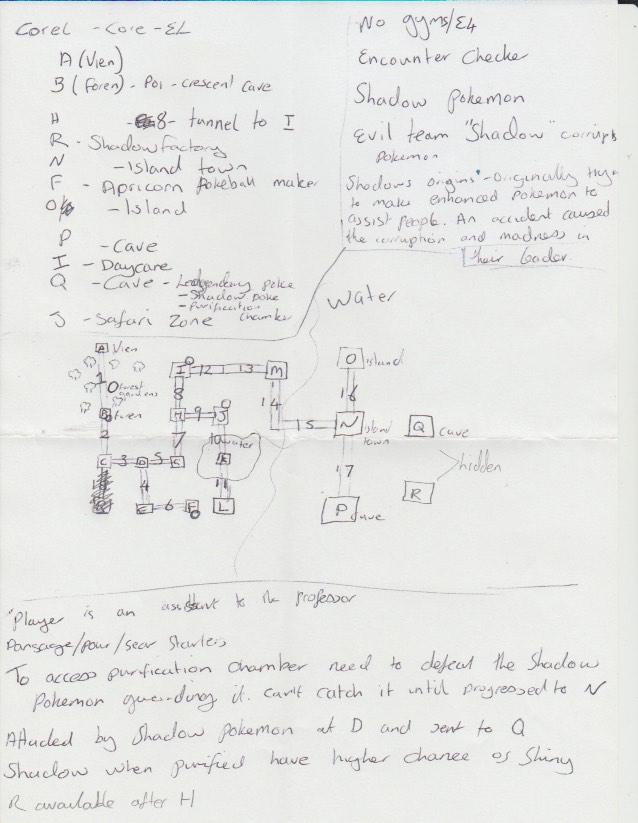 Corel - Core - EL
A (Vien)
B (Foren) - Poi - crescent cave
H - 8 - tunnel to I
R - Shadow factory
N - Island town
F - Apricorn Pokeball maker
O - Island
P - Cave
I - Daycare
Q - Cave - Legendary poke
- Shadow poke
- purification chamber
J - Safari Zone
No gyms/E4
Encounter Checker
Shadow pokemon
Evil team "Shadow" corrupts
Pokemon
Shadows origins - originally try
to make enhanced pokemon to
assist people. An accident caused
the corruption and madness in
their leader.
Water
A Vien
1 forest
gardens
B Foren
2
C 3 D 5 G
4
E 6 F
7
H 9 J
8
I 12 13 M
10 water
K
11
L
14
15
O island
16
N Island
town
17
P cave
Q cave
hidden
R
"Player is an assistant to the professor
Pansage/pour/sear starters
To access purification chamber need to defeat the Shadow
Pokemon guarding it. can't catch it until progressed to N
Attacked by Shadow pokemon at D and sent to Q
Shadow when purified have higher chance of Shiny
R available after H